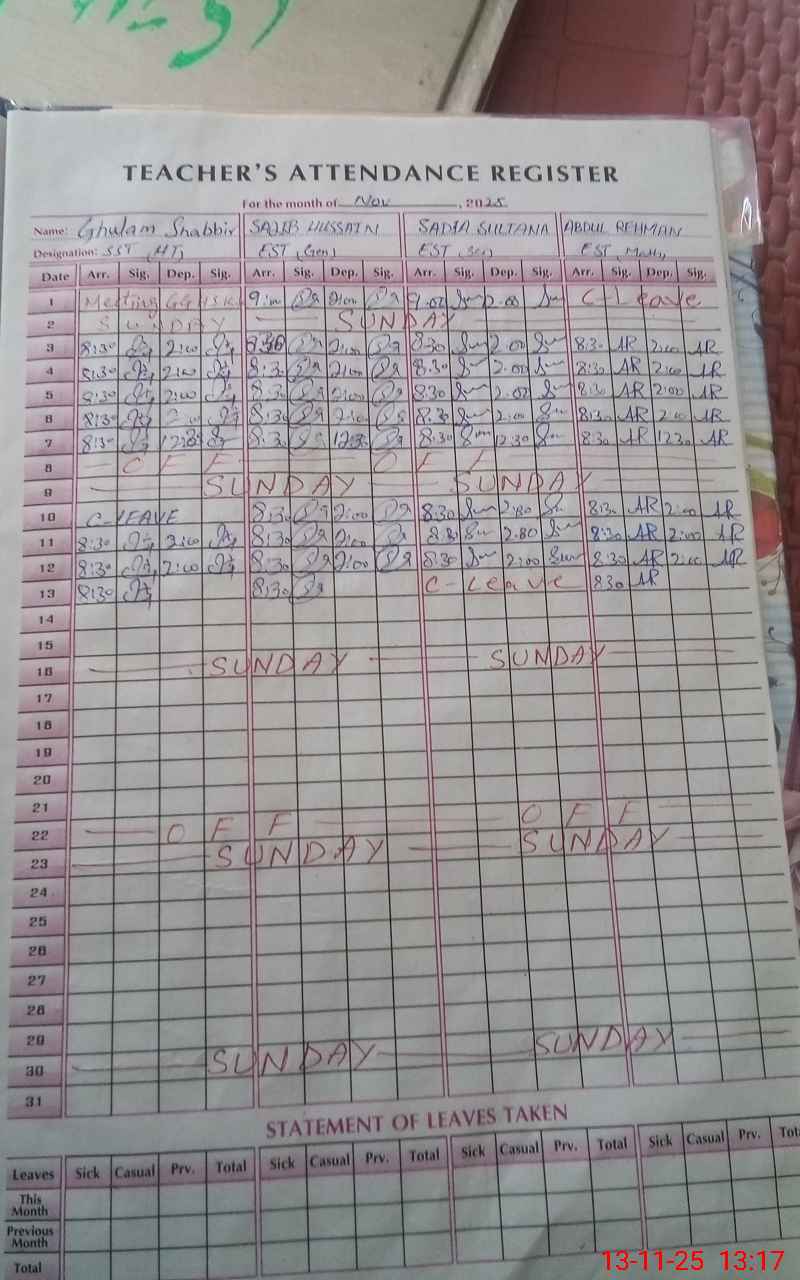 TEACHER'S ATTENDANCE REGISTER
For the month of Nov, 2025
Name: Ghulam Shabbir SAJIB HUSSAIN SADIA SULTANA ABDUL REHMAN
Designation: SST (HT) EST (Gen) EST (Sci) EST, Math
Date Arr. Sig. Dep. Sig. Arr. Sig. Dep. Sig. Arr. Sig. Dep. Sig. Arr. Sig. Dep. Sig.
1 Meeting 9:00 2:00 9:00 2:00 C-Leave
2 SUNDAY SUNDAY
3 8:30 2:00 8:30 2:00 8:30 2:00 8:30 AR 2:00 AR
4 8:30 2:00 8:30 2:00 8:30 2:00 8:30 AR 2:00 AR
5 8:30 2:00 8:30 2:00 8:30 2:00 8:30 AR 2:00 AR
6 8:30 2:00 8:30 2:00 8:30 2:00 8:30 AR 2:00 AR
7 8:30 12:30 8:30 12:30 8:30 12:30 8:30 AR 1230 AR
8 OFF OFF
9 SUNDAY SUNDAY
10 C-LEAVE 8:30 2:00 8:30 2:80 8:30 AR 2:00 AR
11 8:30 2:00 8:30 2:00 8:30 2.80 8:30 AR 2:00 AR
12 8:30 2:00 8:30 2:00 8:30 2:00 8:30 AR 2:00 AR
13 8:30 8:30 C-Leave 830 AR
14
15
16 SUNDAY SUNDAY
17
18
19
20
21
22 OFF OFF
23 SUNDAY SUNDAY
24
25
26
27
28
29
30 SUNDAY SUNDAY
31
STATEMENT OF LEAVES TAKEN
Leaves Sick Casual Prv. Total Sick Casual Prv. Total Sick Casual Prv. Total Sick Casual Prv.
This Month
Previous Month
Total
13-11-25 13:17